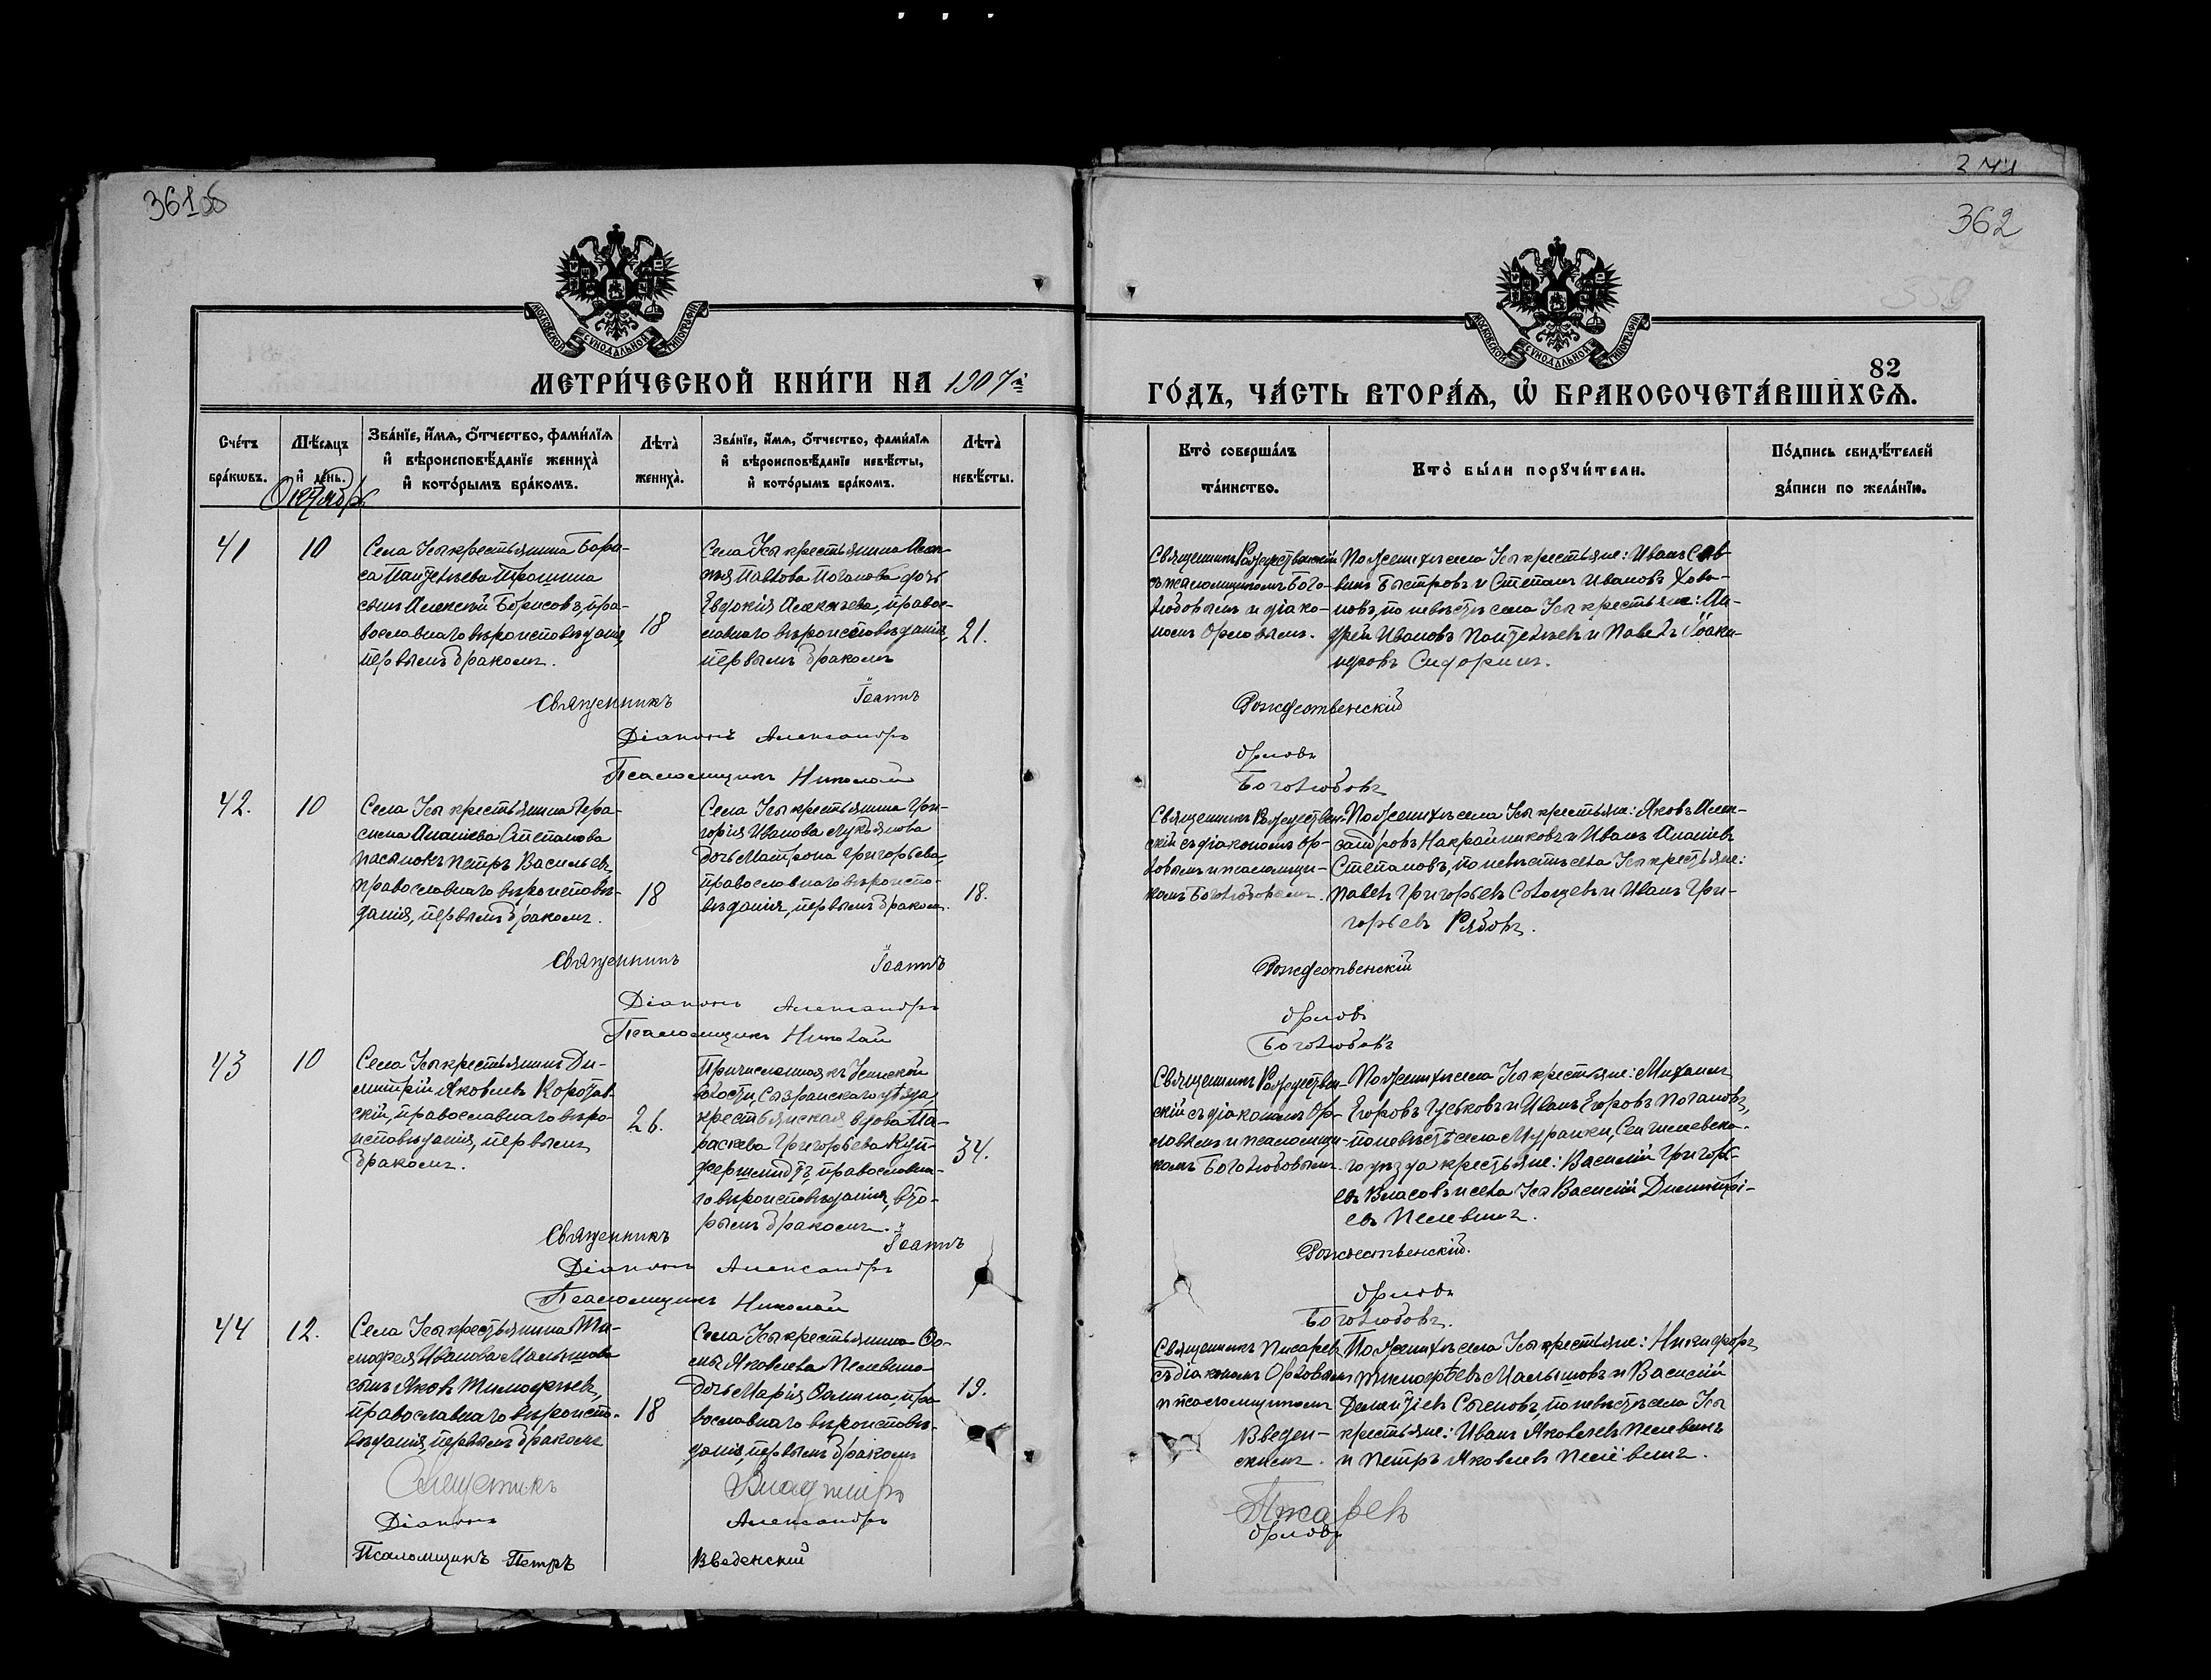 361об
362
82
МОСКОВСКОЙ СѴНОДАЛЬНОЙ ТИПОГРАФІИ
МОСКОВСКОЙ СѴНОДАЛЬНОЙ ТИПОГРАФІИ
МЕТРИ́ЧЕСКОЙ КНИ́ГИ НА 1907й
ГО́ДЪ, ЧА́СТЬ ВТОРА́Я, Ѡ БРАКОСОЧЕТА́ВШИХСЯ.
Сче́тъ бра́кѡвъ.
Мѣ́сяцъ и де́нь.
Зва́нїе, и́мя, о́тчество, фами́лїя и вѣроисповѣ́данїе жениха̀ и кото́рымъ бра́комъ.
Лѣта̀ жениха̀.
Зва́нїе, и́мя, о́тчество, фами́лїя и вѣроисповѣ́данїе невѣ́сты, и кото́рымъ бра́комъ.
Лѣта̀ невѣ́сты.
Кто̀ соверша́лъ та́инство.
Кто̀ бы́ли порꙋчи́тели.
По́дпись свидѣ́телей за́писи по жела́нїю.
Октябрь
41
10
Села Усы крестьянина Бори-
са Пантелѣева
сынъ Алексѣй Борисовъ, пра-
вославнаго вѣроисповѣданія,
первымъ бракомъ.
18
Села Усы крестьянина Алек-
сѣя Павлова Поганова дочь
Евдокія Алексѣева, правос-
лавнаго вѣроисповѣданія,
первымъ бракомъ
21.
Священникъ Рождественскій
съ псаломщикомъ Бого-
любовымъ и діако-
номъ Орловымъ.
По женихѣ села Усы крестьяне: Иванъ Сав-
винъ Быстровъ и Степанъ Ивановъ
по невѣстѣ села Усы крестьяне: Ан-
дрей Ивановъ Пантелѣевъ и Павелъ
Сидоринъ.
Священникъ Іоаннъ Рождественскій
Діаконъ Александръ Орловъ
Псаломщикъ Николай Боголюбовъ
42.
10
Села Усы крестьянина Гера-
сима Ананіева Степанова
пасынокъ Петръ Васильевъ,
православнаго вѣроисповѣ-
данія, первымъ бракомъ.
18
Села Усы крестьянина Гри-
горія Иванова Лукьянова
дочь Матрона Григорьева,
православнаго вѣроиспо-
вѣданія, первымъ бракомъ.
18.
Священникъ Рождествен-
скій съ діакономъ Ор-
ловымъ и псаломщи-
комъ Боголюбовымъ.
По женихѣ села Усы крестьяне: Яковъ Алек-
сандровъ Накрайниковъ и Иванъ Ананіевъ
Степановъ, по невѣстѣ села Усы крестьяне:
Павелъ Григорьевъ Солощевъ и Иванъ Гри-
горьевъ Рябовъ.
Священникъ Іоаннъ Рождественскій
Діаконъ Александръ Орловъ
Псаломщикъ Николай Боголюбовъ
43
10
Села Усы крестьянинъ Ди-
митрій Яковлевъ Коротов-
скій, православнаго вѣро-
исповѣданія, первымъ
бракомъ.
26.
Причисленная къ Усинской
волости, Сызранскаго уѣзда,
крестьянская вдова Па-
раскева Григорьева Куп-
фершмидтъ, православна-
го вѣроисповѣданія, вто-
рымъ бракомъ.
34.
Священникъ Рождествен-
скій съ діакономъ Ор-
ловымъ и псаломщи-
комъ Боголюбовымъ.
По женихѣ села Усы крестьяне: Михаилъ
Егоровъ Гуськовъ и Иванъ Егоровъ Погановъ,
по невѣстѣ села Муранки, Сенгилеевска-
го уѣзда крестьяне: Василій Григорь-
евъ Власовъ и села Усы Василій Димитрі-
евъ Пелевинъ.
Священникъ Іоаннъ Рождественскій.
Діаконъ Александръ Орловъ
Псаломщикъ Николай Боголюбовъ.
44
12.
Села Усы крестьянина Ти-
мофея Иванова Малышова
сынъ Яковъ Тимофѣевъ,
православнаго вѣроиспо-
вѣданія, первымъ бракомъ
18
Села Усы крестьянина Ѳо-
мы Яковлева Пелевина
дочь Марія Ѳомина, пра-
вославнаго вѣроисповѣ-
данія, первымъ бракомъ
19.
Священникъ Писаревъ
съ діакономъ Орловымъ
и псаломщикомъ
Введен-
скимъ.
По женихѣ села Усы крестьяне: Никифоръ
Тимофѣевъ Малышовъ и Василій
Дементіевъ по невѣстѣ села Усы
крестьяне: Иванъ Яковлевъ Пелевинъ
и Петръ Яковлевъ Пелевинъ.
Священникъ Владиміръ Писаревъ
Діаконъ Александръ Орловъ
Псаломщикъ Петръ Введенскій